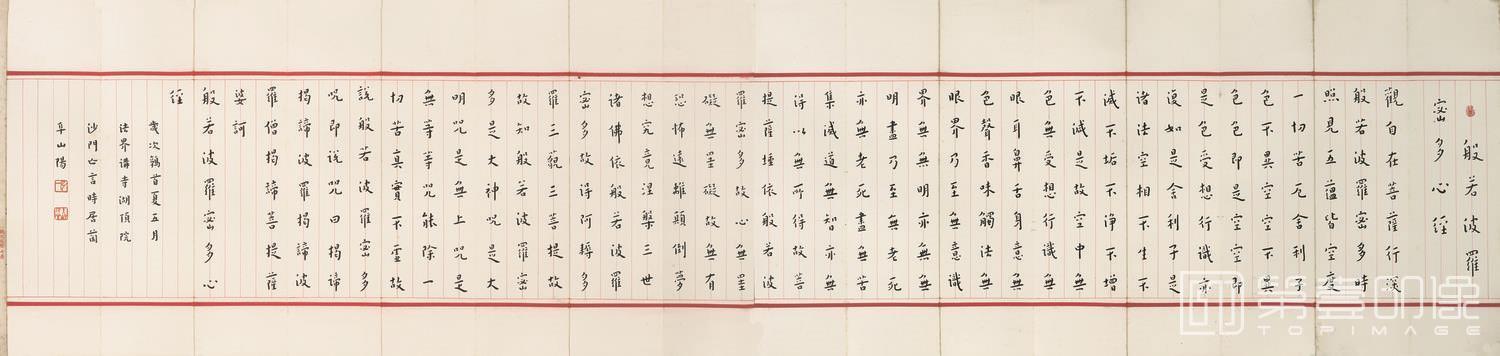 般若波羅
密多心經
觀自在菩薩行深
般若波羅密多時
照見五蘊皆空度
一切苦厄舍利子
色不異空空不異
色色即是空空即
是色受想行識亦
復如是舍利子是
諸法空相不生不
滅不垢不淨不增
不減是故空中無
色無受想行識無
眼耳鼻舌身意無
色聲香味觸法無
眼界乃至無意識
界無無明亦無無
明盡乃至無老死
亦無老死盡無苦
集滅道無智亦無
得以無所得故菩
提薩埵依般若波
羅密多故心無罣
礙無罣礙故無有
恐怖遠離顛倒夢
想究竟涅槃三世
諸佛依般若波羅
密多故得阿耨多
羅三藐三菩提故
故知般若波羅密
多是大神咒是大
明咒是無上咒是
無等等咒能除一
切苦真實不虛故
說般若波羅密多
咒即說咒曰揭諦
揭諦波羅揭諦波
羅僧揭諦菩提薩
婆訶
般若波羅密多心
經
歲次鶉首夏五月
法界講寺湖頂院
沙門亡言時居茁
阜山陽
TOPIMAGE